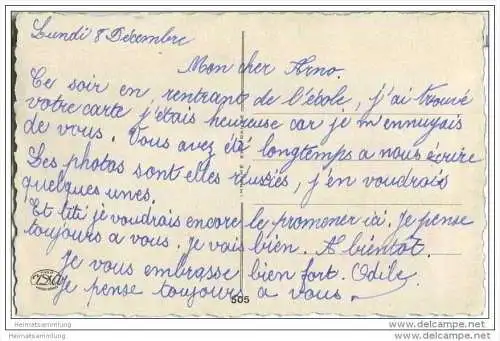 Lundi 8 Décembre
Mon cher Arno.
Ce soir en rentrant de l'école, j'ai trouvé
votre carte, j'étais heureuse car je m'ennuyais
de vous. Vous avez été longtemps a nous écrire
Les photos sont elles réussies, j'en voudrais
quelques unes.
Et titi je voudrais encore le promener ici. Je pense
toujours a vous. je vais bien. A bientot.
je vous embrasse bien fort. Odile.
je pense toujours a vous.
505
Heimatsammlung
www.delcampe.net